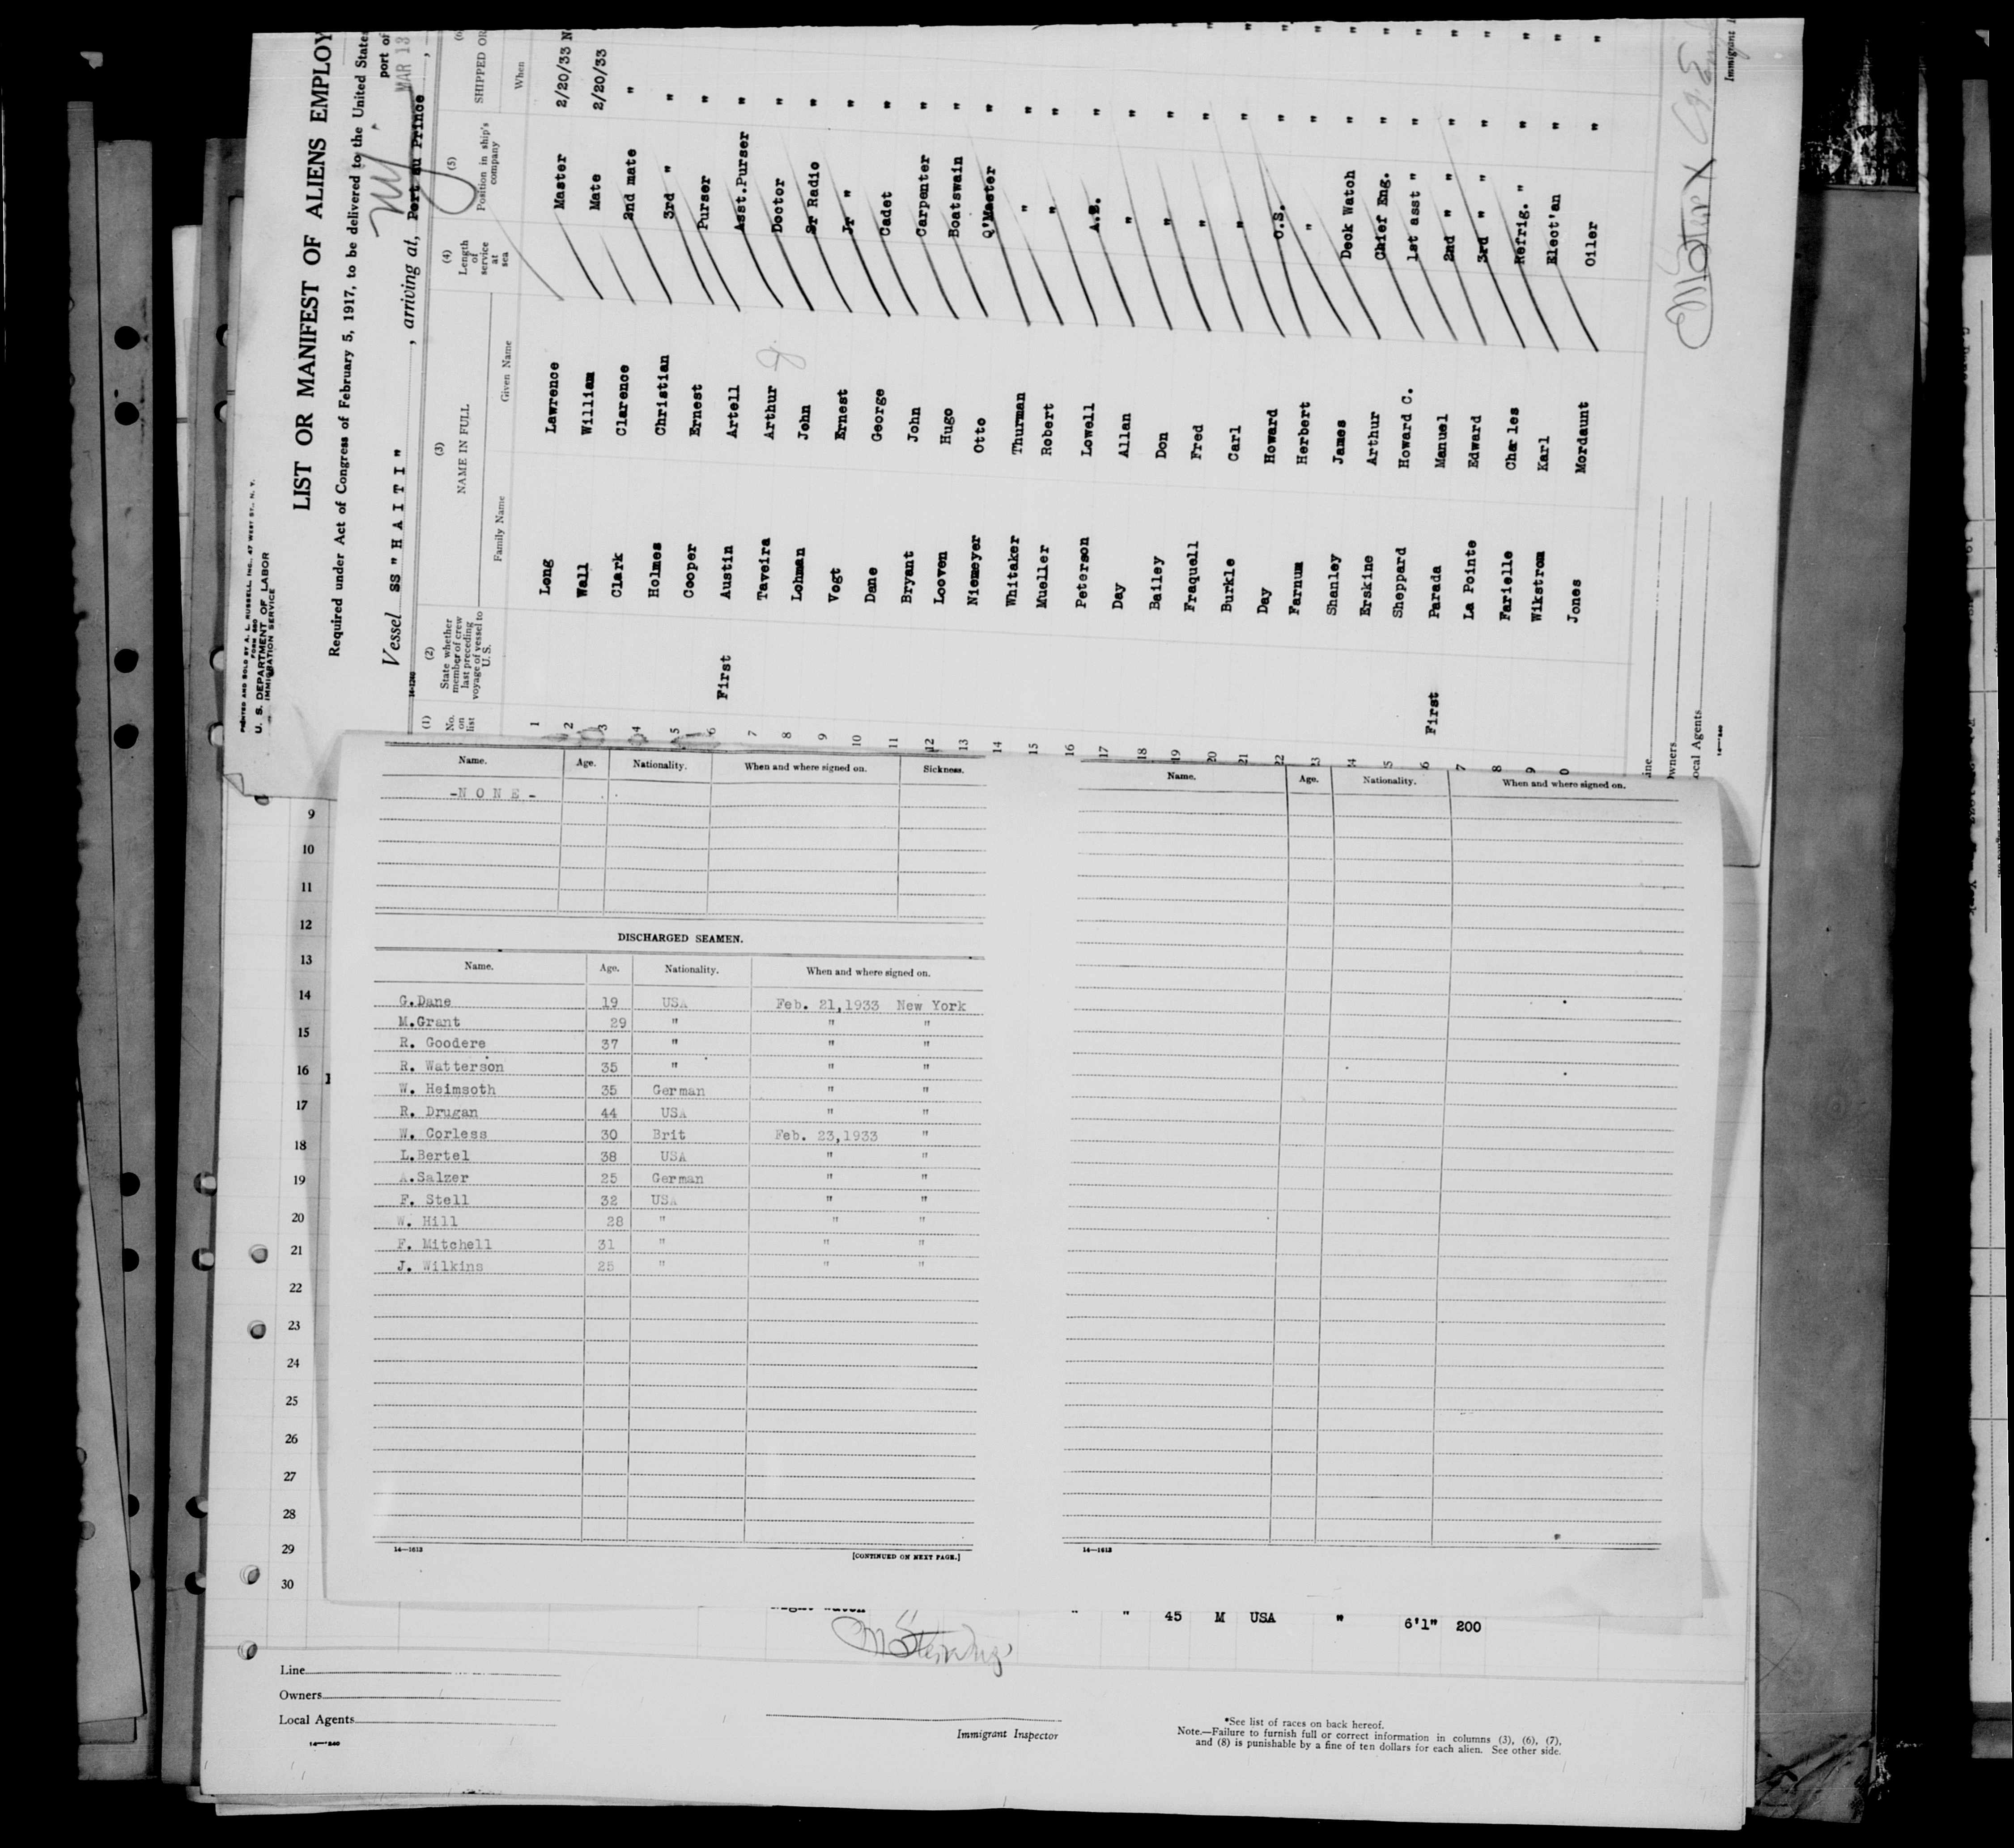 PRINTED AND SOLD BY A. L. RUSSELL, INC., 47 WEST ST., N. Y.
FORM 680
U. S. DEPARTMENT OF LABOR
IMMIGRATION SERVICE
LIST OR MANIFEST OF ALIENS EMPLOY
Required under Act of Congress of February 5, 1917, to be delivered to the United States
port of
Vessel SS "HAITI" , arriving at, Port au Prince , MAR 13
(1) (2) (3) (4) (5) (6)
No. on list
State whether member of crew last preceding voyage of vessel to U. S.
NAME IN FULL
Family Name Given Name
Length of service at sea
Position in ship's company
SHIPPED OR
When
1 Long Lawrence Master 2/20/33 N
2 Wall William Mate 2/20/33
3 Clark Clarence 2nd mate "
4 Holmes Christian 3rd " "
5 Cooper Ernest Purser "
6 First Austin Artell Asst.Purser "
7 Taveira Arthur Doctor "
8 Lohman John Sr Radio "
9 Vogt Ernest Jr " "
10 Dane George Cadet "
11 Bryant John Carpenter "
12 Looven Hugo Boatswain "
13 Niemeyer Otto Q'Master "
14 Whitaker Thurman " "
15 Mueller Robert " "
16 Peterson Lowell A.B. "
17 Day Allan " "
18 Bailey Don " "
19 Fraquell Fred " "
20 Burkle Carl " "
21 Day Howard O.S. "
22 Farnum Herbert " "
23 Shanley James Deck Watch "
24 Erskine Arthur Chief Eng. "
5 Sheppard Howard C. 1st asst " "
6 First Parada Manuel 2nd " " "
7 La Pointe Edward 3rd " " "
8 Farielle Charles Refrig. " "
9 Wikstrom Karl Elect'an "
0 Jones Mordaunt Oiler "
ine
wners
ocal Agents
Immigrant I
Name. Age. Nationality. When and where signed on. Sickness.
-N O N E -
DISCHARGED SEAMEN.
Name. Age. Nationality. When and where signed on.
G.Dane 19 USA Feb. 21,1933 New York
M.Grant 29 " " "
R. Goodere 37 " " "
R. Watterson 35 " " "
W. Heimsoth 35 German " "
R. Drugan 44 USA " "
W. Corless 30 Brit Feb. 23,1933 "
L.Bertel 38 USA " "
A.Salzer 25 German " "
F. Stell 32 USA " "
W. Hill 28 " " "
F. Mitchell 31 " " "
J. Wilkins 25 " " "
14—1613
[CONTINUED ON NEXT PAGE.]
Name. Age. Nationality. When and where signed on.
14—1613
9
10
11
12
13
14
15
16
17
18
19
20
21
22
23
24
25
26
27
28
29
30
" " 45 M USA " 6'1" 200
Line
Owners
Local Agents
Immigrant Inspector
*See list of races on back hereof.
Note.—Failure to furnish full or correct information in columns (3), (6), (7),
and (8) is punishable by a fine of ten dollars for each alien. See other side.